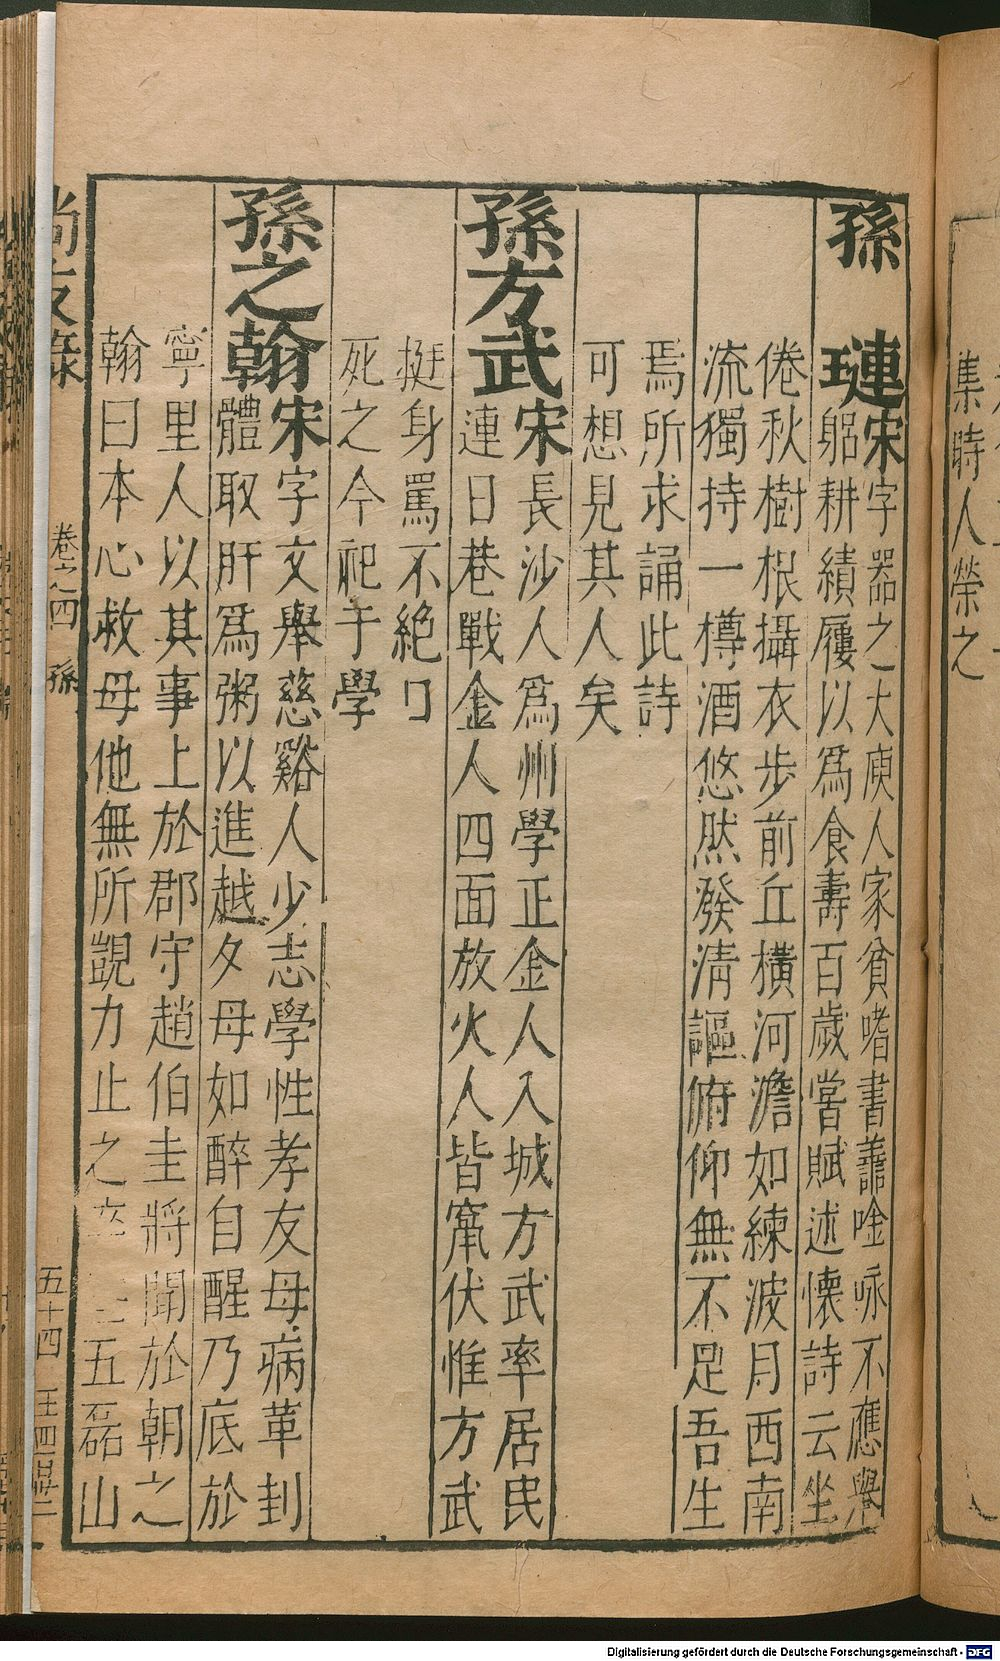 孫　璉宋字器之大庾人家貧嗜書善唫咏不應舉
躬耕績屨以爲食壽百歲嘗賦述懷詩云坐
倦秋樹根攝衣步前丘橫河澹如練波月西南
流獨持一樽酒悠然發淸謳俯仰無不足吾生
焉所求誦此詩
可想見其人矣
孫方武宋長沙人爲州學正金人入城方武率居民
連日巷戰金人四面放火人皆竄伏惟方武
挺身罵不絕口
死之今祀于學
孫之翰宋字文舉慈谿人少志學性孝友母病革刲
體取肝爲粥以進越夕母如醉自醒乃底於
寧里人以其事上於郡守趙伯圭將聞於朝之
翰曰本心救母他無所覬力止之卒五磊山
尚友錄
卷之四　孫
五十四
集時人榮之
Digitalisierung gefördert durch die Deutsche Forschungsgemeinschaft - DFG